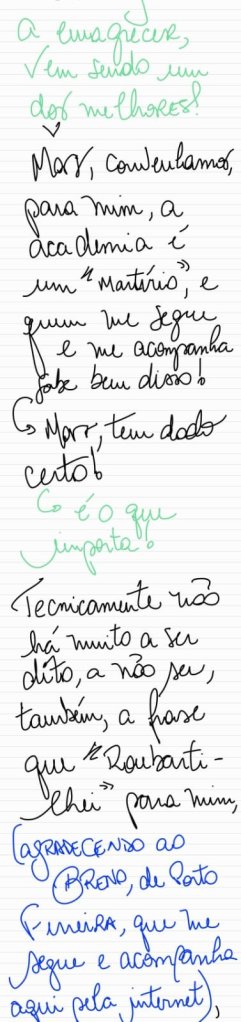 a emagrecer,
vem sendo um
dos melhores!
Mas, convenhamos,
para mim, a
academia é
um "Martírio", e
quem me segue
e me acompanha
sabe bem disso!
↳ Mas, tem dado
certo!
↳ é o que
importa!
Tecnicamente não
há muito a ser
dito, a não ser,
também, a frase
que "Roubarti-
lhei" para mim,
(agradecendo ao
BRENO, de Porto
Ferreira, que me
segue e acompanha
aqui pela internet),